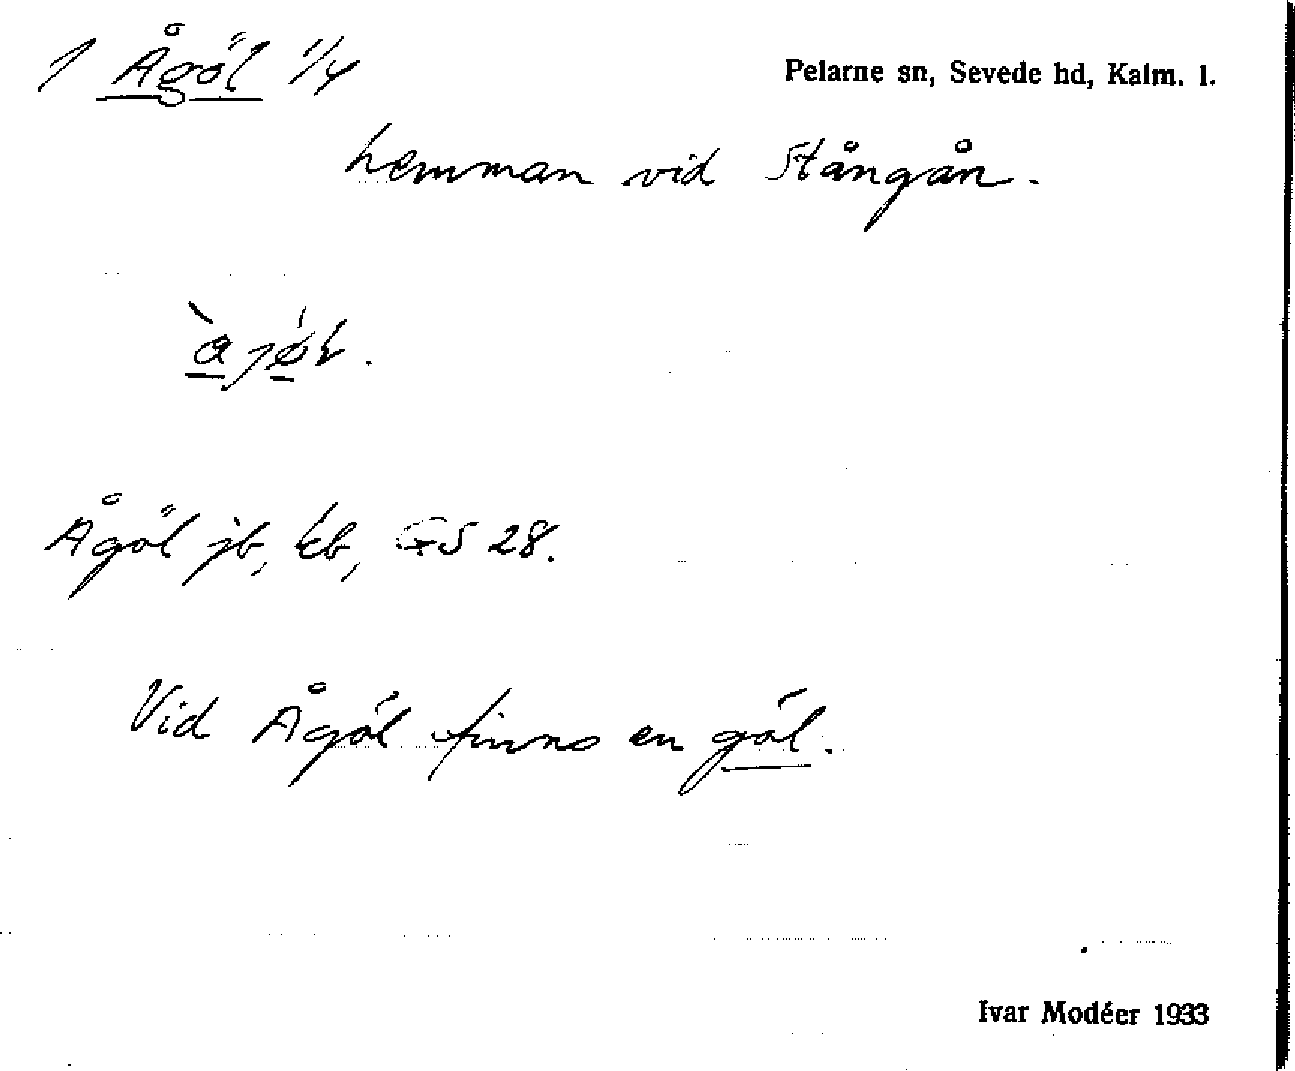 1 Ågöl 1/4
Pelarne sn, Sevede hd, Kalm. l.
hemman vid Stångån.
Ågöl jb, kb, GS 28.
Vid Ågöl finns en göl.
Ivar Modéer 1933